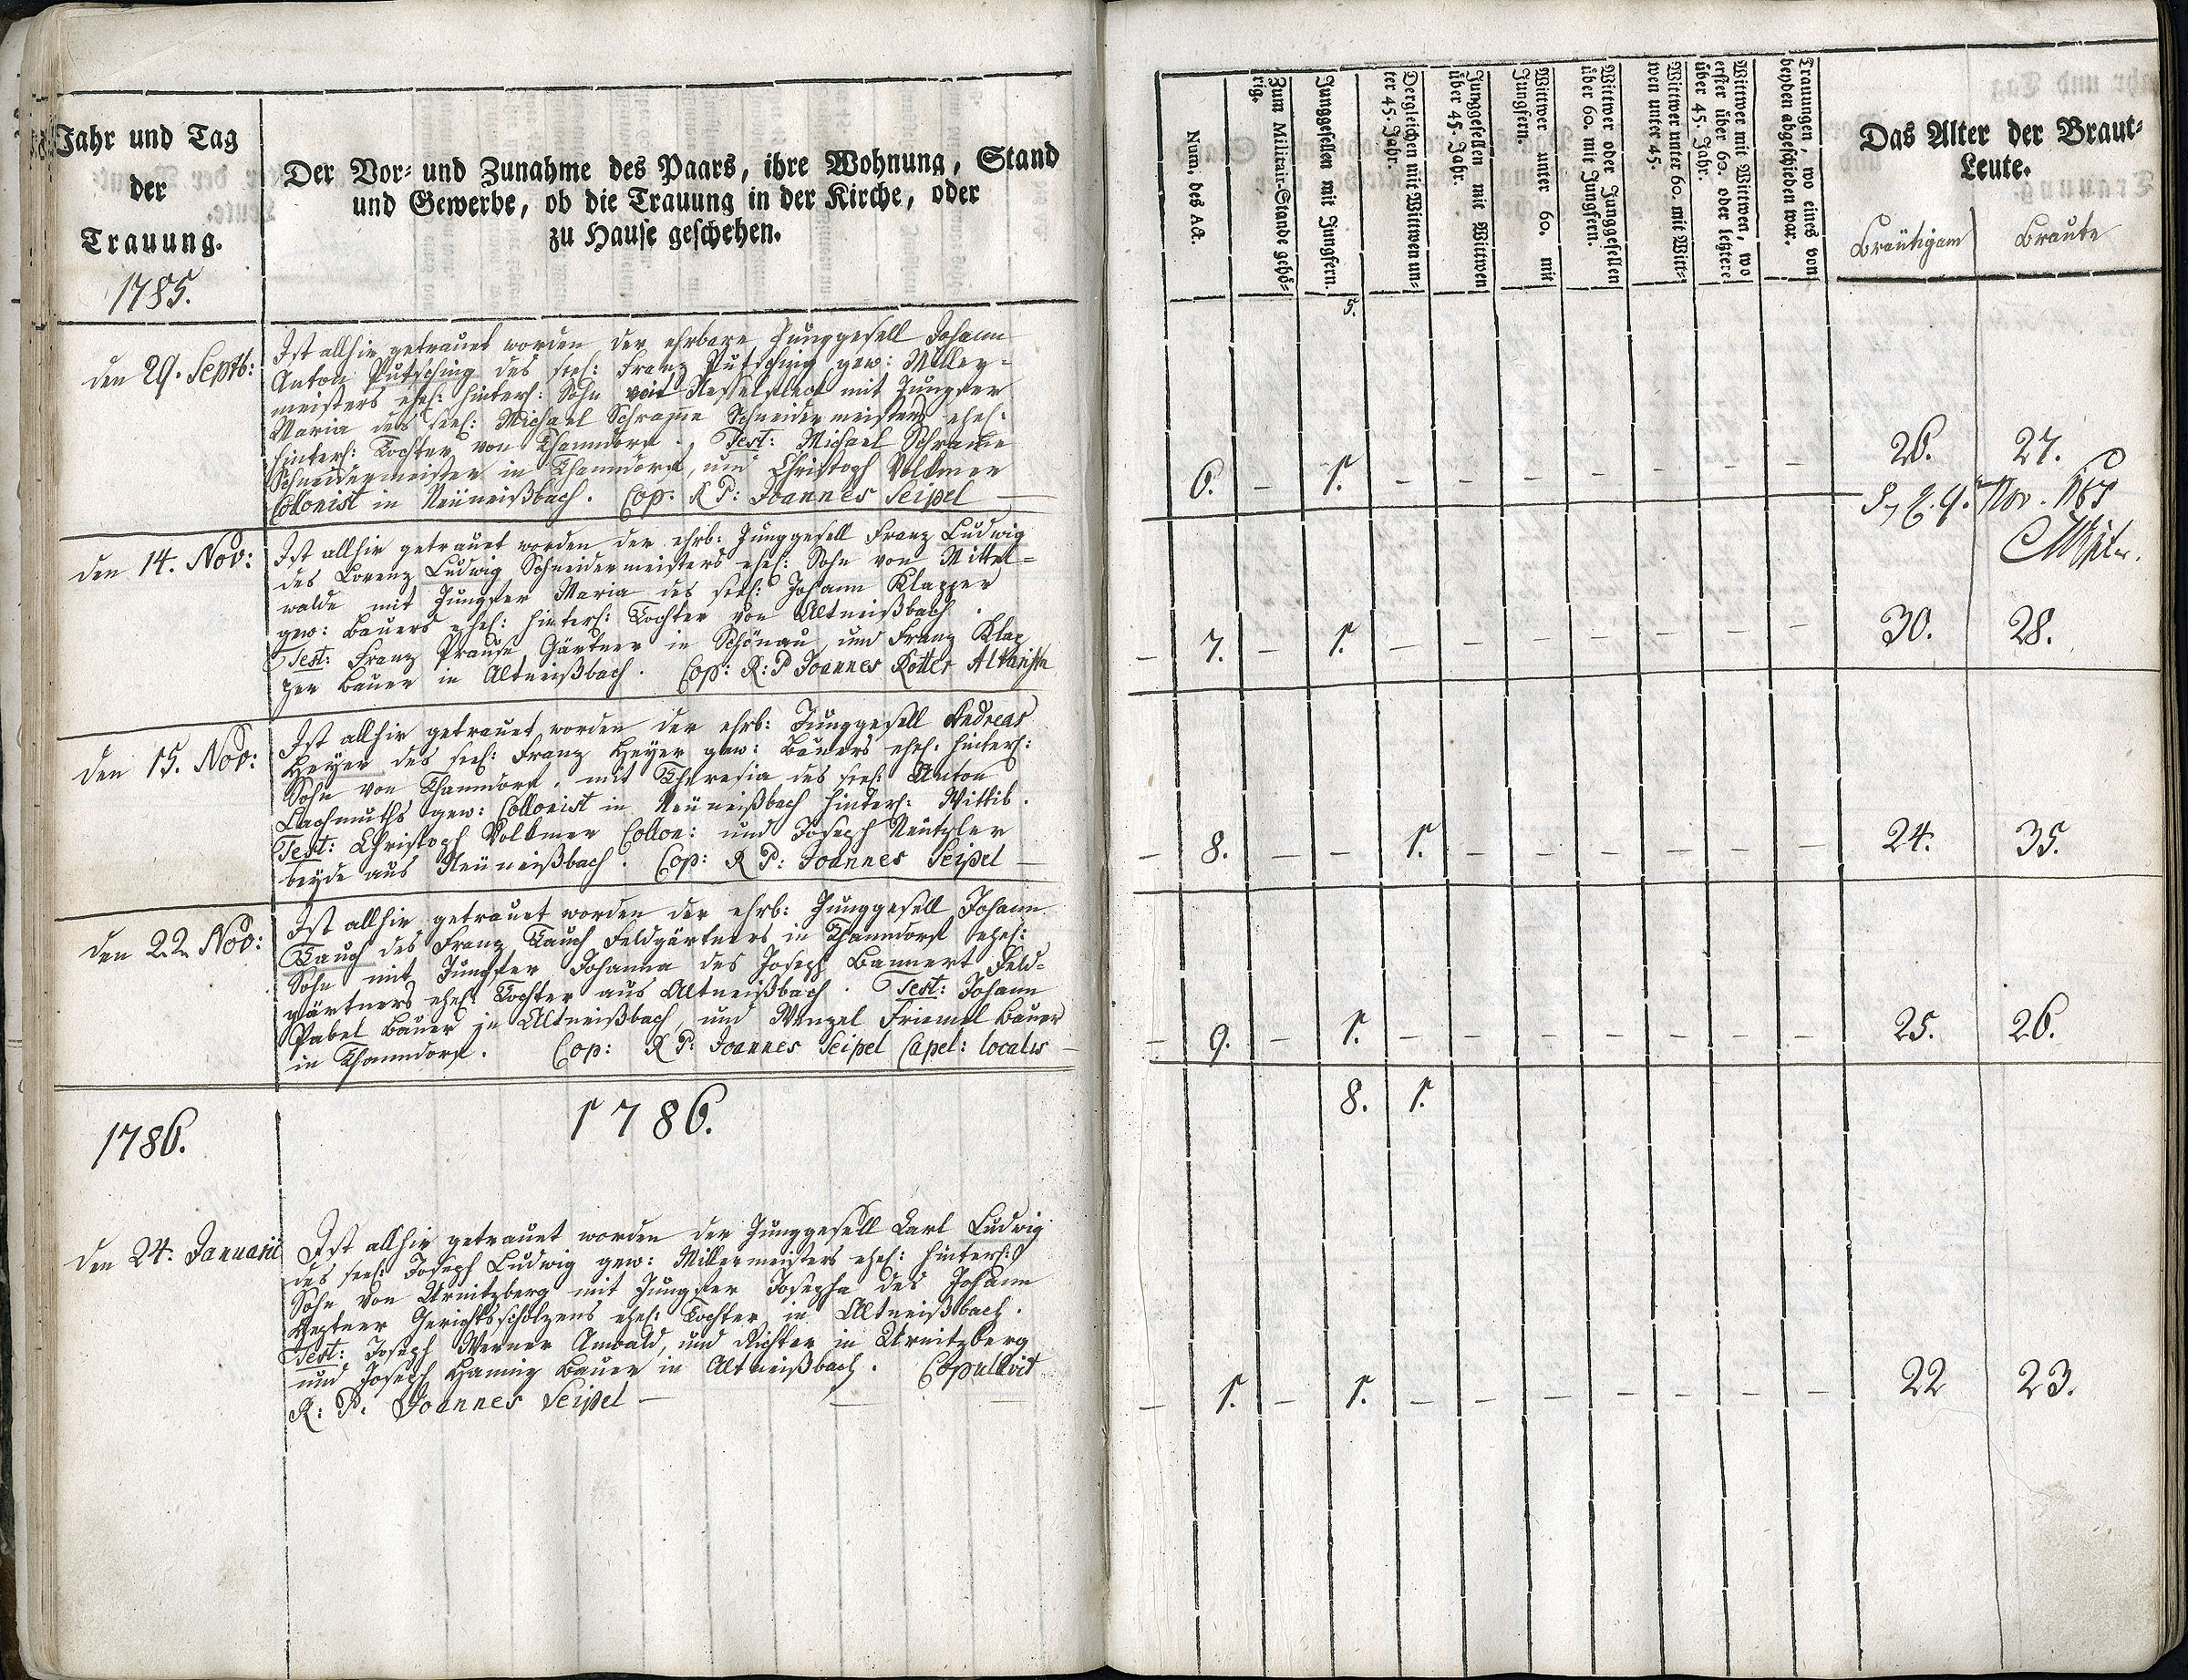 Jahr und Tag
der
Trauung.
1785.
Der Vor- und Zunahme des Paars, ihre Wohnung, Stand
und Gewerbe, ob die Trauung in der Kirche, oder
zu Hause geschehen.
den 29. Septb:
Ist allhir getrauet worden der ehrbare Junggesell Johann
Anton Putsching des seel: Franz Putsching gew: Müller-
meisters ehel: hinterl: Sohn mit Jungfer
Maria des seel: Michael Schrame Schneidermeisters ehel:
hinterl: Tochter von Thanndorf. Test: Michael Schrame
Schneidermeister in Thanndorf, und Christoph Volkmer
Collonist in Neüneißbach. Cop: R P: Joannes Seipel
den 14. Nov:
Ist allhir getrauet worden der ehrb: Junggesell Franz Ludwig
des Lorenz Ludwig Schneidermeisters ehel: Sohn von Mittel-
walde mit Jungfer Maria des seel: Johann Klapper
gew: Bauers ehel: hinterl: Tochter von Altneißbach.
Test: Franz Prause Gärtner in Schönau und Franz Klap
per Bauer in Altneißbach. Cop: R: P Joannes Rotter Altarista
den 15. Nov:
Ist allhir getrauet worden der ehrb: Junggesell Andreas
Heyer des seel: Franz Heyer gew: Bauers ehel: hinterl:
Sohn von Thanndorf, mit Theresia des seel: Anton
Lachmuths gew: Collonist in Neüneißbach hinderl: Wittib.
Test: Christoph Volkmer Collon: und Joseph
beyde aus Neüneißbach. Cop: R P: Joannes Seipel
den 22. Nov:
Ist allhir getrauet worden der ehrb: Junggesell Johann
Tauch des Franz Tauch Feldgärtners in Thanndorf ehel:
Sohn mit Jungfer Johanna des Joseph Bannert Feld-
gärtners ehel: Tochter aus Altneißbach. Test: Johann
Pabel Bauer in Altneißbach, und Wenzel Friemel Bauer
in Thanndorf. Cop: R P: Joannes Seipel Capel: localis
1786.
1786.
den 24. Januarii
Ist allhir getrauet worden der Junggesell Carl Ludwig
des seel: Joseph Ludwig gew: Millermeisters ehel: hinterl:
Sohn von Urnitzberg mit Jungfer Josepha des Johann
Gerichtsscholzens ehel: Tochter in Altneißbach.
Test: Joseph Werner Anwald, und Richter in Urnitzberg
und Joseph Hannig Bauer in Altneißbach. Copulavit
R: P: Joannes Seipel
Num. des Act.
Zum Militair-Stande gehö-
rig.
Junggesellen mit Jungfern.
Dergleichen mit Wittwen un-
ter 45. Jahr.
Junggesellen mit Wittwen
über 45. Jahr.
Wittwer unter 60. mit
Jungfern.
Wittwer oder Junggesellen
über 60. mit Jungfern.
Wittwer unter 60. mit Witt-
wen unter 45.
Wittwer mit Wittwen, wo
erster über 60. oder letztere
über 45. Jahr.
Trauungen, wo eines von
beyden abgeschieden war.
Das Alter der Braut-
Leute.
Bräutigam Braute
5.
6. – 1. – – – – – – – 26. 27.
Nov.
– 7. – 1. – – – – – – – 30. 28.
– 8. – – 1. – – – – – – 24. 35.
– 9. 1. – – – – – – – 25. 26.
8. 1.
– 1. – 1. – – – – – – – 22 23.